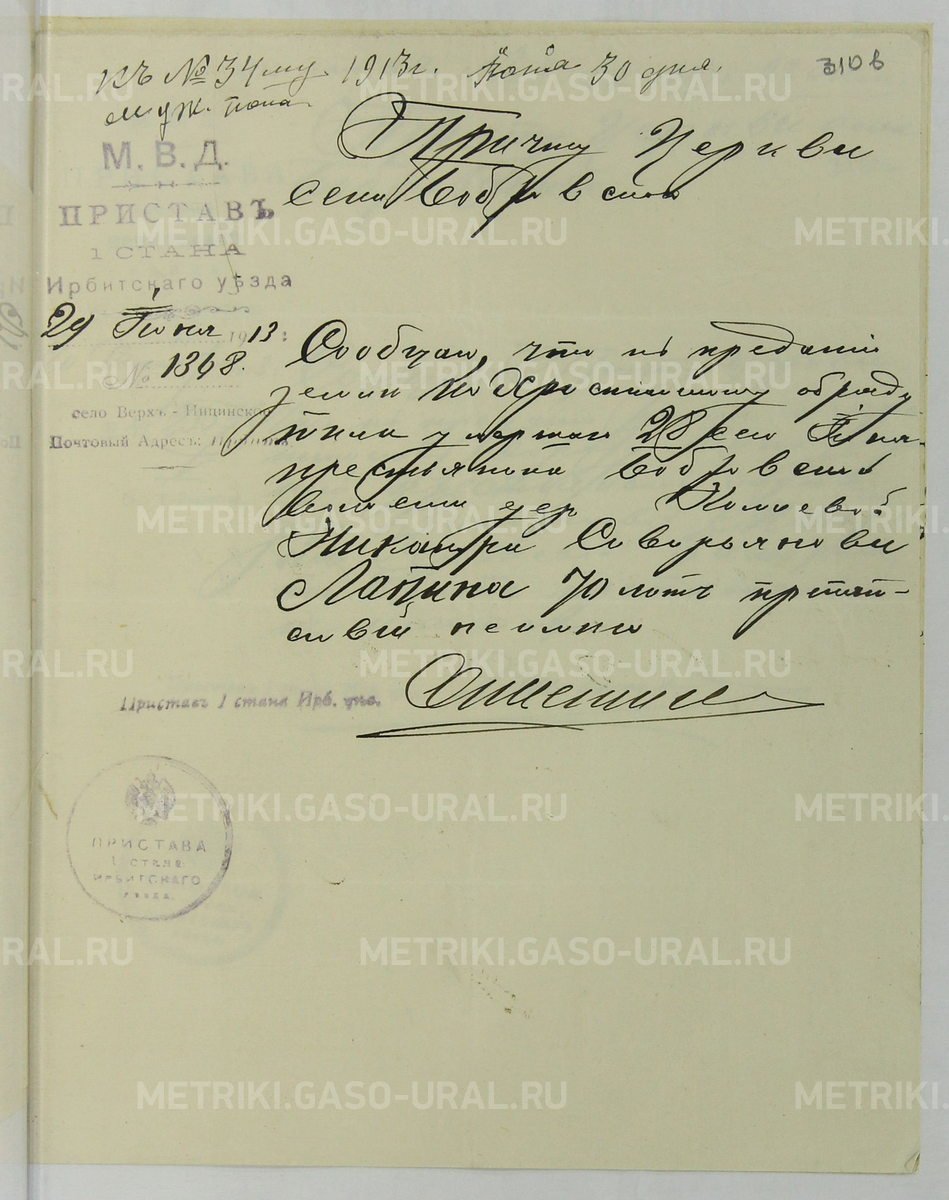 Къ № 34 му 1913 г. Іюня 30 дня. 310 в
муж. пола
М. В. Д.
ПРИСТАВЪ
1 СТАНА
Ирбитскаго уѣзда
29 Іюня 1913 г.
№ 1368.
село Верхъ-Ницинское
Почтовый Адресъ:
Причту Церкви
села Бобровскаго
Сообщаю, что къ преданію
земли по Христианскому обряду
тела умершаго 28 сего Іюня
крестьянина Бобровской
волости дер
Никандра Северьянова
Лапина 70 летъ препят-
ствий не
Приставъ 1 стана Ирб. уѣз.
ПРИСТАВА
1 СТАНА
ИРБИТСКАГО
УѢЗДА
METRIKI.GASO-URAL.RU